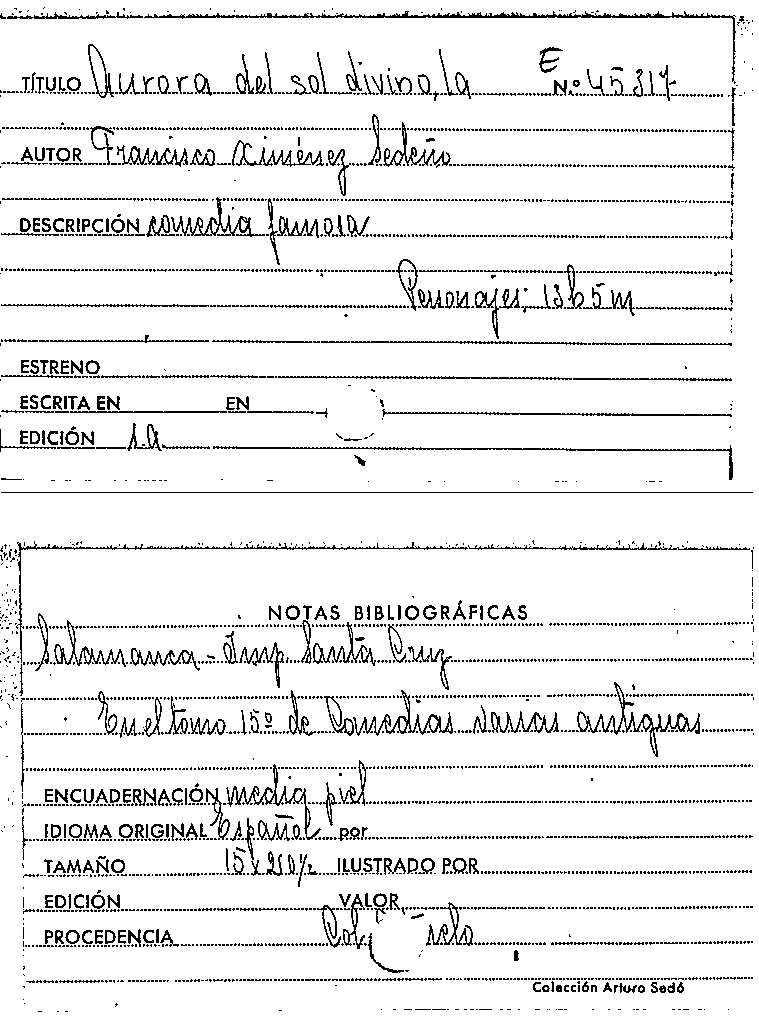 E
TÍTULO Aurora del sol divino, la N.º 45317
AUTOR Francisco Ximénez Sedeño
DESCRIPCIÓN comedia famosa
Personajes; 13h 5m
ESTRENO
ESCRITA EN EN
EDICIÓN s.a.
NOTAS BIBLIOGRÁFICAS
Salamanca - Imp Santa Cruz
En el tomo 15º de Comedias varias antiguas
ENCUADERNACIÓN media piel
IDIOMA ORIGINAL Español por
TAMAÑO 15 x ILUSTRADO POR
EDICIÓN VALOR
PROCEDENCIA
Colección Arturo Sedó